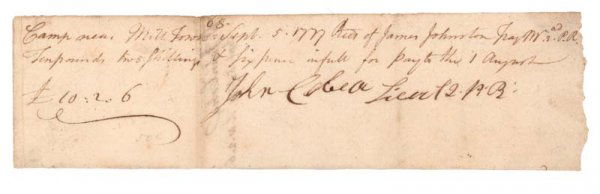 Camp near Mill Town Sept. 5. 1777 Recd of James Johnston Pay Mr 2nd P.R.
Ten pounds two Shillings & Six pence in full for pay to the 1 August
£ 10: 2. 6 John Cobea Lieut 2. P.R: